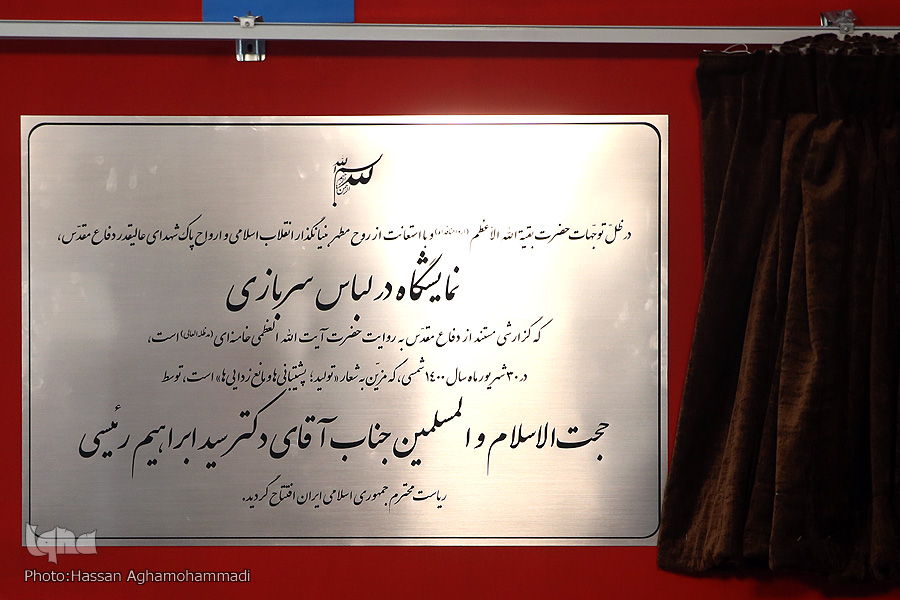 بسم الله الرحمن الرحیم
در ظلّ توجّهات حضرت بقیة الله الاعظم (ارواحنافداه) و با استعانت از روح مطهر بنیانگذار انقلاب اسلامی و ارواح پاک شهدای عالیقدر دفاع مقدّس،
نمایشگاه در لباس سربازی
که گزارشی مستند از دفاع مقدّس به روایت حضرت آیت الله العظمی خامنه‌ای (مدظله العالی) است،
در ۳۰ شهریور ماه سال ۱۴۰۰ شمسی، که مزیّن به شعار «تولید؛ پشتیبانی‌ها و مانع زدایی‌ها» است، توسط
حجت الاسلام و المسلمین جناب آقای دکتر سید ابراهیم رئیسی
ریاست محترم جمهوری اسلامی ایران افتتاح گردید.
iqna
Photo:Hassan Aghamohammadi